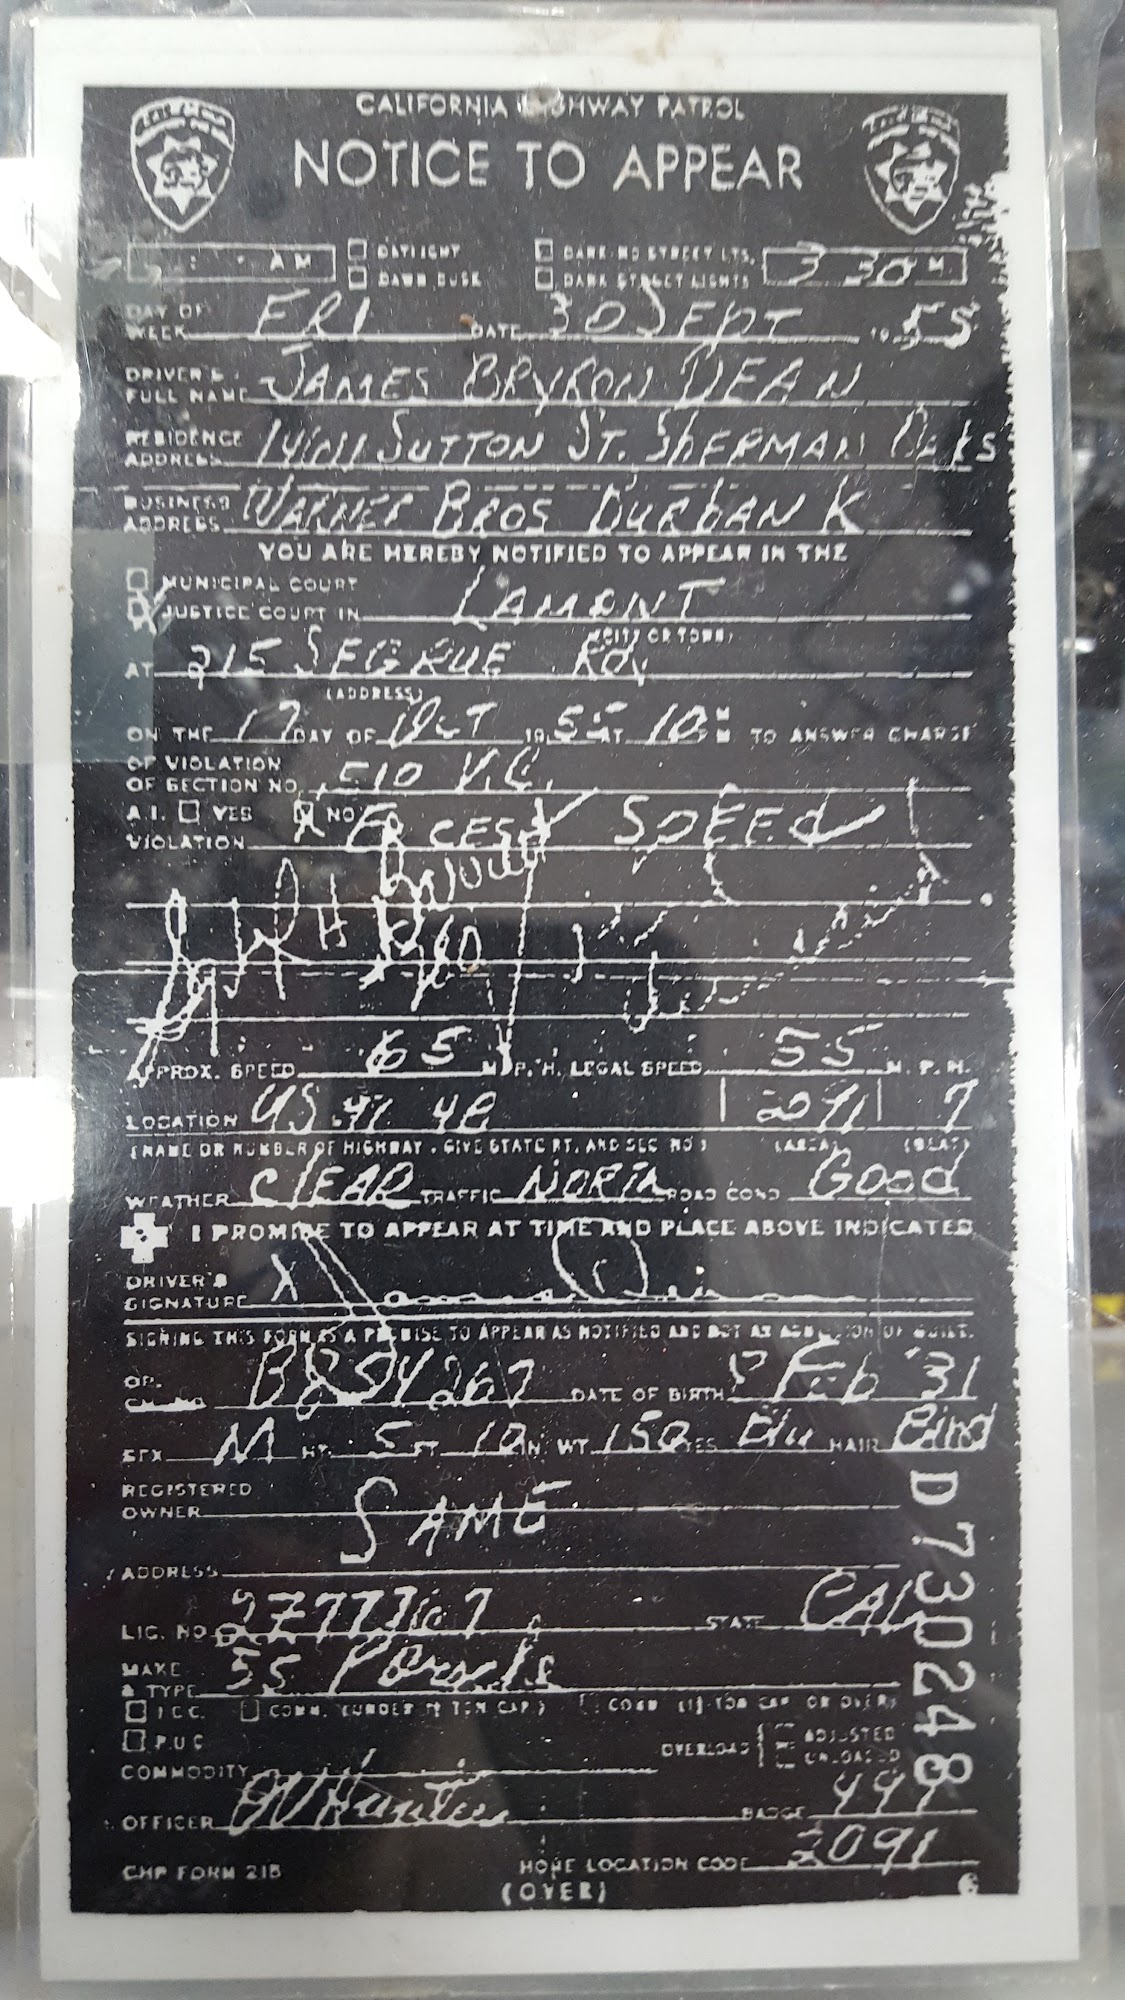 CALIFORNIA HIGHWAY PATROL
NOTICE TO APPEAR
AM DAYLIGHT DARK-NO STREET LTS. 3 30 M
DAWN DUSK DARK STREET LIGHTS
DAY OF WEEK FRI DATE 30 SEPT 19 55
DRIVER'S FULL NAME JAMES BRYRON DEAN
RESIDENCE ADDRESS SUTTON ST. SHERMAN Oaks
BUSINESS ADDRESS WARNER BROS BURBANK
YOU ARE HEREBY NOTIFIED TO APPEAR IN THE
MUNICIPAL COURT
X JUSTICE COURT IN LAMONT
(CITY OR TOWN)
AT 215 SEGRUE Rd.
(ADDRESS)
ON THE 17 DAY OF Oct 19 55 AT 10 M TO ANSWER CHARGE
OF VIOLATION
OF SECTION NO. 510 V.C.
A.I. YES X NO
VIOLATION SPEED
APPROX. SPEED 65 M.P.H. LEGAL SPEED 55 M.P.H.
LOCATION US 2091 7
(NAME OR NUMBER OF HIGHWAY, GIVE STATE RT. AND SEC NO.) (AREA) (BEAT)
WEATHER CLEAR TRAFFIC ROAD COND Good
I PROMISE TO APPEAR AT TIME AND PLACE ABOVE INDICATED
DRIVER'S SIGNATURE X James Dean
SIGNING THIS FORM IS A PROMISE TO APPEAR AS NOTIFIED AND NOT AN ADMISSION OF GUILT.
OP. DATE OF BIRTH 8 Feb 31
SEX M HT. 5 FT 10 IN. WT. 150 EYES Blu HAIR Blnd
REGISTERED OWNER SAME
ADDRESS
LIC. NO. STATE CAL
MAKE & TYPE 55 Porsche
I.C.C. COMM. (UNDER TON CAP) COMM (1 1/2 TON CAP OR OVER)
P.U.C OVERLOAD ADJUSTED
UNLOADED
COMMODITY
OFFICER OV Hunter BADGE
HOME LOCATION CODE 2091
CHP FORM 215
(OVER)
D730248